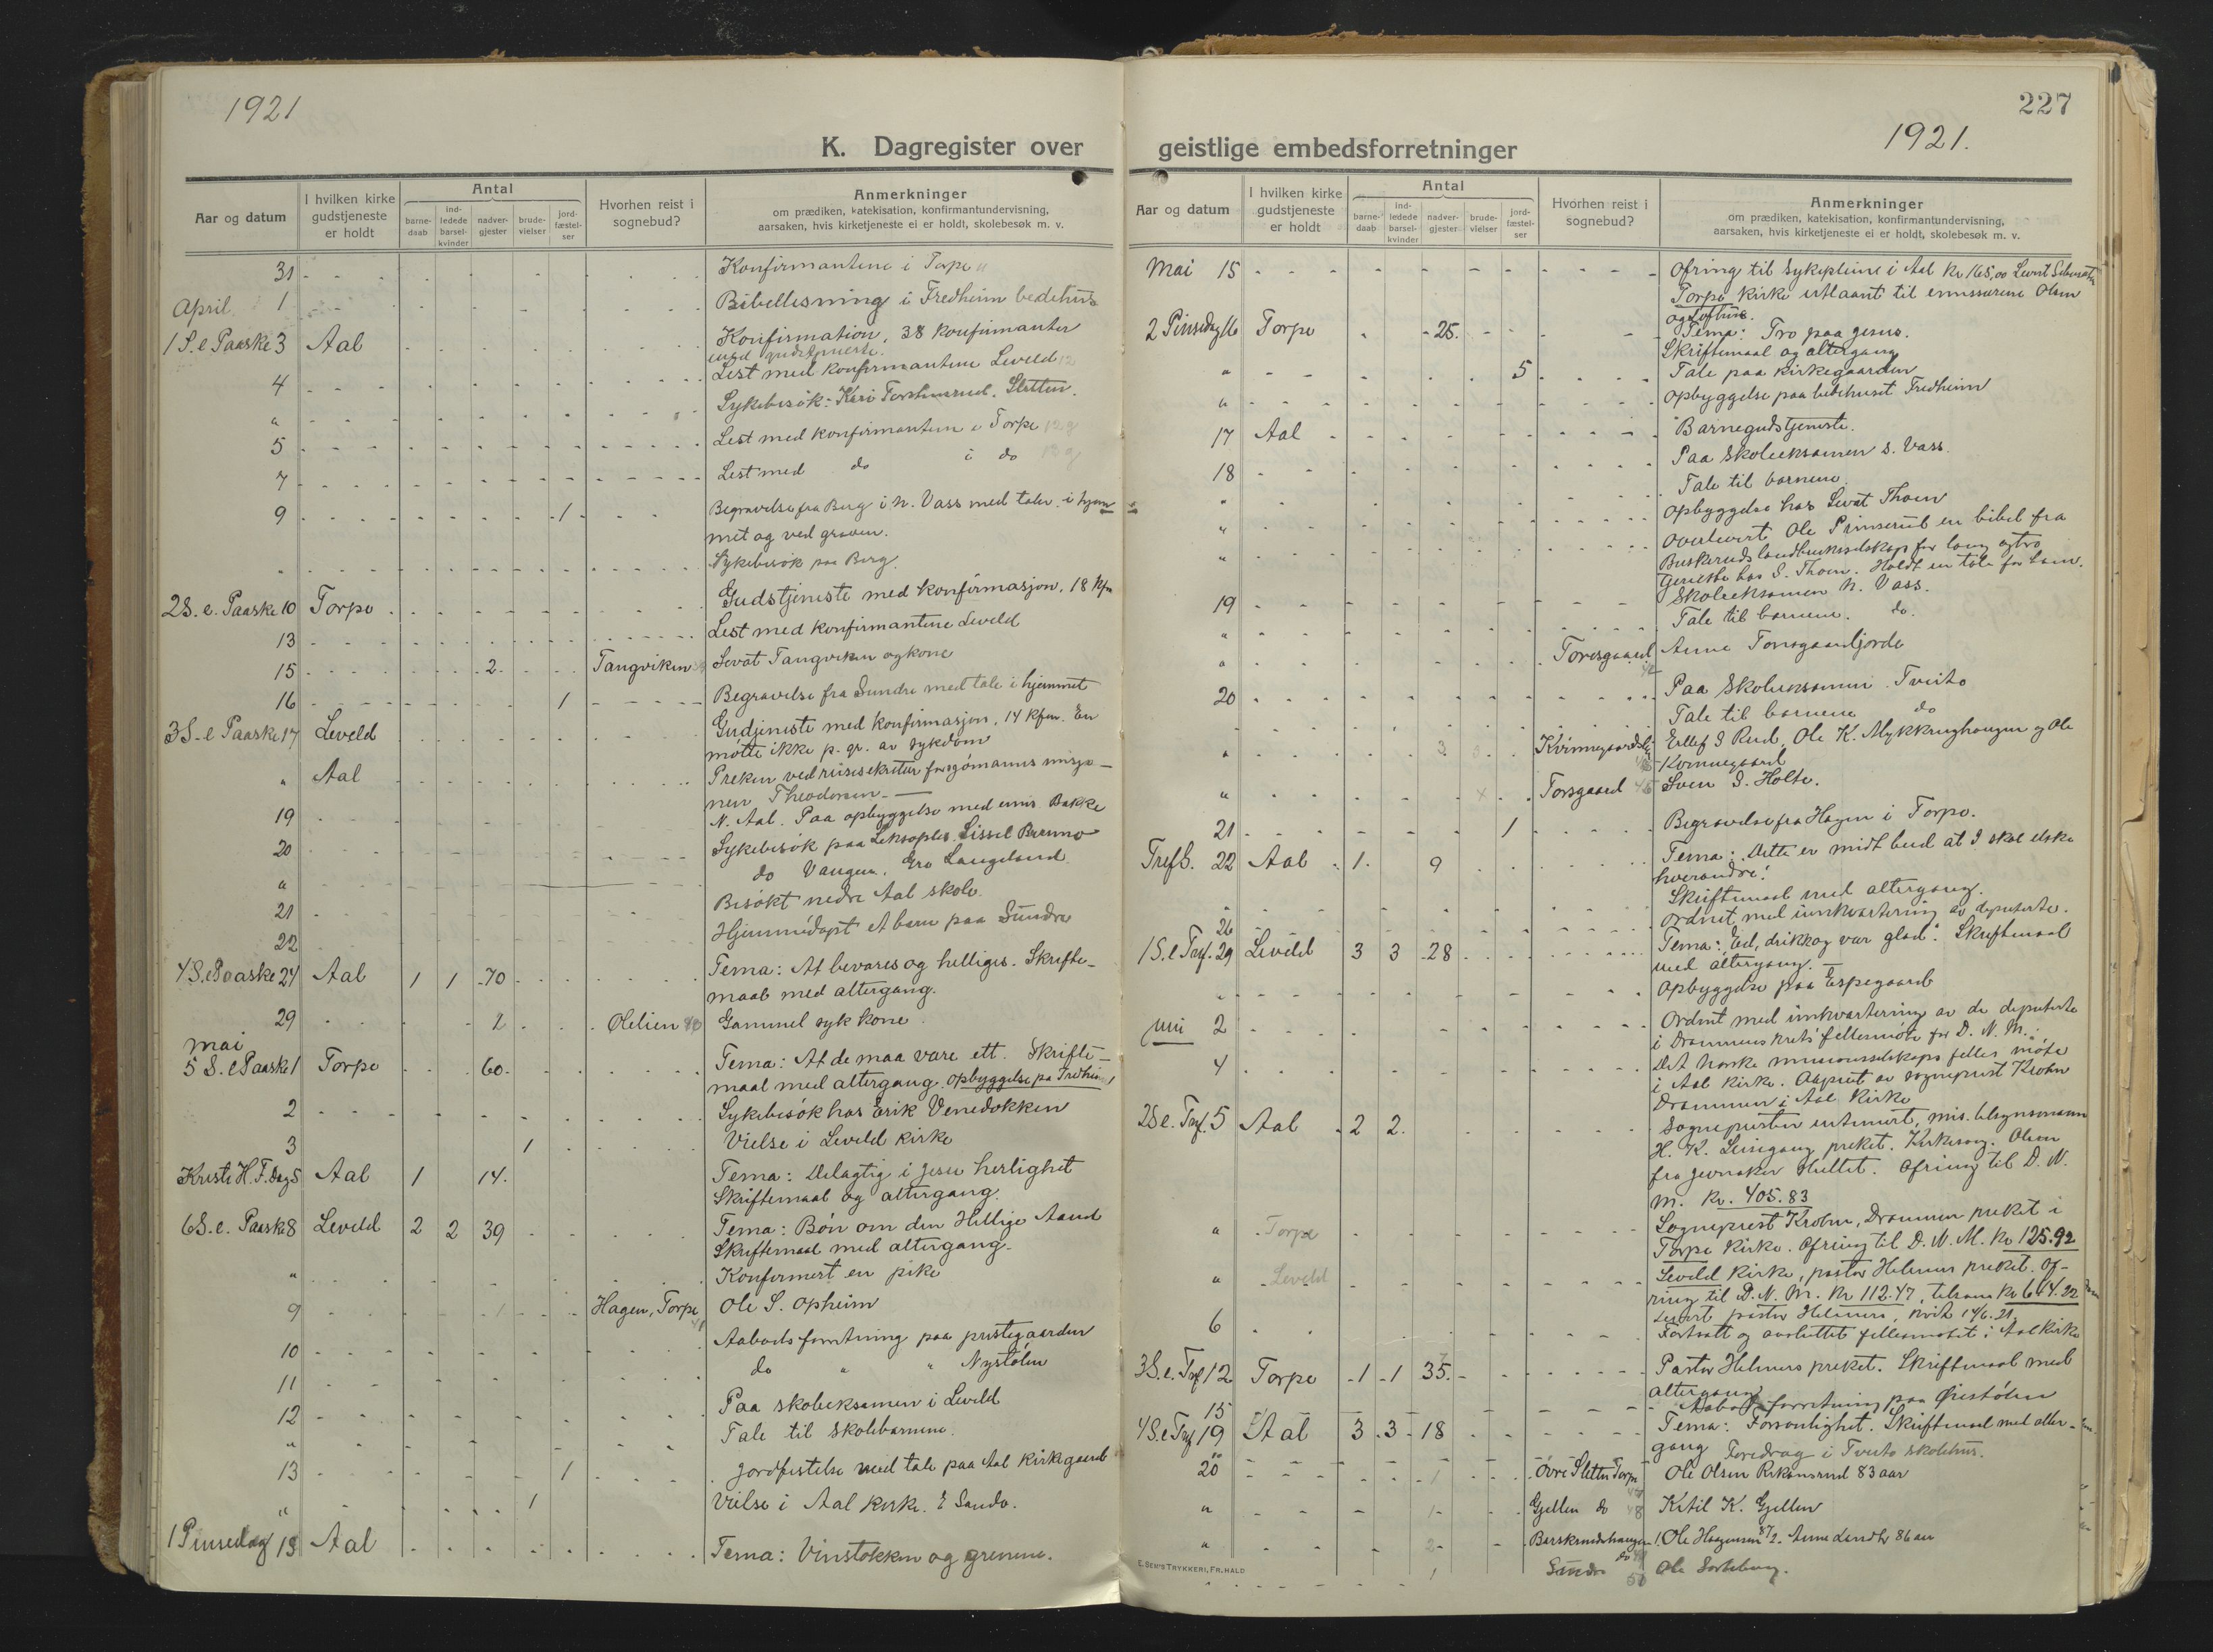 1921
K. Dagregister over
Aar og datum
I hvilken kirke gudstjeneste er holdt
Antal
barne-daab
ind-ledede barsel-kvinder
nadver-gjester
brude-vielser
jord-fæstel-ser
Hvorhen reist i sognebud?
Anmerkninger
om prædiken, katekisation, konfirmantundervisning,
aarsaken, hvis kirketjeneste ei er holdt, skolebesøk m. v.
31 Konfirmantene i Torpe
April 1 Bibellesning i Fredheim bedehus
1 S. e Paaske 3 Aal Konfirmation, 38 konfirmanter
med gudstjeneste.
4 Lest med konfirmantene Leveld 12
" Sykebesøk: Kari Sletten.
5 Lest med konfirmantene i Torpe
7 Lest med do i do
9 1 Begravelse fra Berg i N. Vass med taler i hjem
met og ved graven.
" Sykebesøk paa Berg.
2 S. e. Paaske 10 Torpe Gudstjeneste med konfirmasjon, 18 kfm
13 Lest med konfirmantene Leveld
15 2 Tangviken Sevat Tangviken og kone
16 1 Begravelse fra Sundre med tale i hjemmet
3 S. e Paaske 17 Leveld Gudjeneste med konfirmasjon, 14 kfm. En
møtte ikke p. gr. av sykdom
" Aal Preken ved reisesekretær for sjømanns misjo-
nen Theodorsen -
19 N. Aal. Paa opbyggelse med emis. Bakke
20 Sykebesøk paa Sissel Brenno
" do Vangen, Gro Langeland
21 Besøkt nedre Aal skole.
22 Hjemmedøpt et barn paa Sundre
4 S. e Paaske 24 Aal 1 1 70 Tema: At bevares og helliges. Skrifte-
maal med altergang.
29 2 Olelien Gammel syk kone.
mai
5 S. e Paaske 1 Torpe 60 Tema: At de maa være ett. Skrifte-
maal med altergang. Opbyggelse pa Fredheim
2 Sykebesøk hos Erik Venedokken
3 1 Vielse i Leveld kirke
Kristi H. F. dag 5 Aal 1 14. Tema: Delagtig i Jesu herlighet
Skriftemaal og altergang.
6 S. e. Paaske 8 Leveld 2 2 39 Tema: Bøn om den Hellige Aand
Skriftemaal med altergang.
" Konfirmert en pike
9 1 Hagen, Torpe Ole S. Opheim
10 Aabodsforretning paa prestegaarden
11 do " " Nystølen
12 Paa skoleeksamen i Leveld
" Tale til skolebarnene.
13 1 Jordfestelse med tale paa Aal kirkegaard
" 1 Vielse i Aal kirke. E Sando.
1 Pinsedag 15 Aal Tema: Vinstokken og grenene.
227
1921.
geistlige embedsforretninger
Aar og datum
I hvilken kirke gudstjeneste er holdt
Antal
barne-daab
ind-ledede barsel-kvinder
nadver-gjester
brude-vielser
jord-fæstel-ser
Hvorhen reist i sognebud?
Anmerkninger
om prædiken, katekisation, konfirmantundervisning,
aarsaken, hvis kirketjeneste ei er holdt, skolebesøk m. v.
Mai 15 Ofring til sykepleine i Aal kr 165,00
Torpe kirke utlaant til emissærene Olsen
og Lofthus.
2 Pinsedag 16 Torpe 25. Tema: Tro paa Jesus.
Skriftemaal og altergang
" 5 Tale paa kirkegaarden
" Opbyggelse paa bedehuset Fredheim
17 Aal Barnegudstjeneste.
18 Paa skoleeksamen S. Vass.
" Tale til barnene.
" Opbyggelse hos Sevat Thoen
" Overlevert Ole en bibel fra
Buskeruds landhusholdningsselskap for lang og tro
tjeneste hos S. Thoen. Holdt en tale for ham.
19 Skoleeksamen N. Vass.
" Tale til barnene. do.
" Torsgaard Anne Torsgaardjorde
20 Paa skoleeksamen Tveito
Tale til barnene do
" 3 Ellef S Rud, Ole K. Mykkinghaugen og Ole
Kvinnegaard
" Torsgaard Sven S. Holte.
21 1 Begravelse fra Hagen i Torpo.
Trefb. 22 Aal 1. 9 Tema: Dette er mitt bud at I skal elske
hverandre!
Skriftemaal med altergang.
26 Ordnet med innkvartering av deputerte.
1 S. e Tref. 29 Leveld 3 3 28 Tema: Ed, drikk og vær glad. Skriftemaal
med altergang.
" Opbyggelse paa Espegaard
Juni 2 Ordnet med innkvartering av de deputerte
i Drammens krets fellesmøte for D. N. M.
4 Det norske missionsselskaps felles møte
i Aal kirke. Aapnet av sogneprest Krohn
Drammen i Aal kirke
2 S e. Tref. 5 Aal 2 2. Sognepresten intimert, mis. tilsynsmann
H. K. Leinegang preket. Kirkesang. Olsen
fra Jevnaker Ofring til D. N.
M. Kr. 405.83
" Torpe Sogneprest Krohn, Drammen preket i
Torpe kirke. Ofring til D. N. M. kr 125.92
" Leveld Leveld kirke, pastor Helmers preket. Of-
ring til D. N. M. kr 112.47, tilsam kr 644.22
levert pastor Helmers, kvit 14/6.21.
6 Fortsatt og avsluttet fellesmøtet i Aal kirke
3 S. e. Tref 12 Torpe 1 1 35. Pastor Helmers preket. Skriftemaal med
altergang
15 Aabodsforretning paa Ørestølen
4 S. e Tref 19 Aal 3 3 18 Tema: Forsonlighet. Skriftemaal med alter-
gang Foredrag i Tveito skolehus.
20 1 Øvre Sletten Torpe Ole Olsen 83 aar
" 1 Gjellen do Ketil K. Gjellen
" 2 Ole Haagensen 87 2. Anne 86 aar
1 Sundre Ole Sorteberg.
E. SEM'S TRYKKERI, FR.HALD